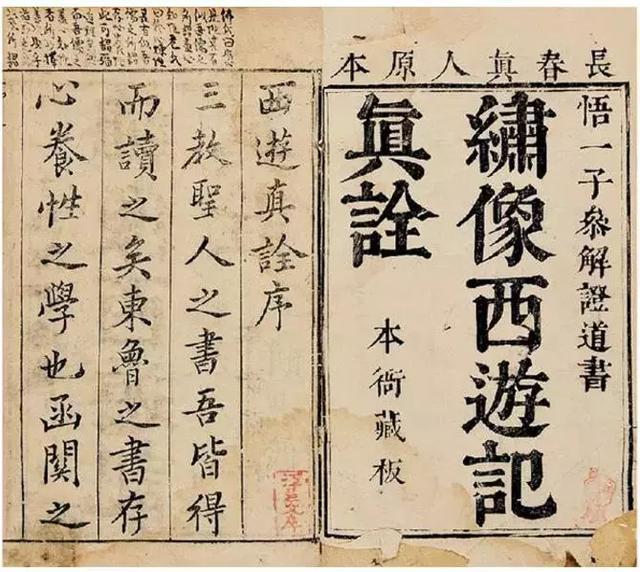 長春眞人原本
悟一子叅解證道書
繡像西遊記
眞詮
本衙藏板
西遊真詮序
三教聖人之書吾皆得
而讀之矣東魯之書存
心養性之學也函關之